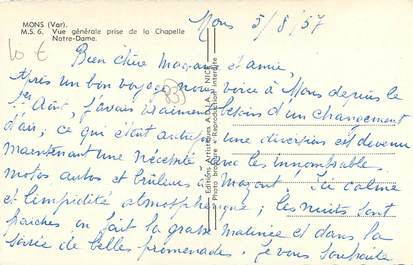 MONS (Var).
M.S.G. Vue générale prise de la Chapelle
Notre-Dame.
Mons 5/8/57
10 €
Bien chère Madame et amie,
Après un bon voyage nous voici à Mons depuis le
1er Août, j'avais vraiment besoin d'un changement
d'air ; ce qui était autrefois une diversion est devenu
maintenant une nécessité avec les innombrables
motos autos et brûleurs à mazout ! Ici calme
et limpidité atmosphérique ; les nuits sont
fraîches on fait la grasse matinée et dans la
soirée de belles promenades. Je vous souhaite
(83)
Editions
NICE
Photo * Reproduction